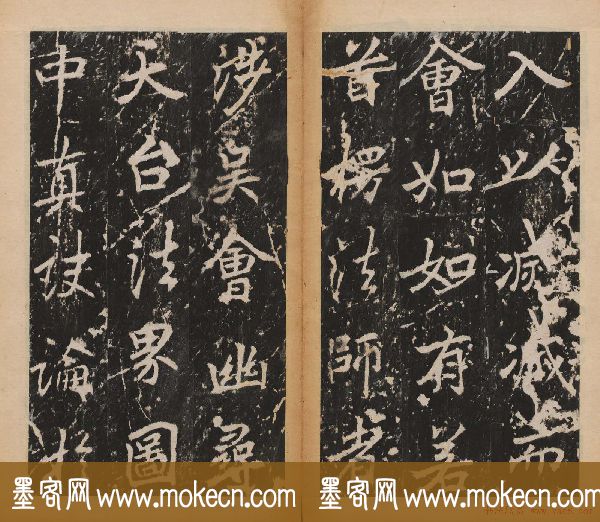 入以滅而
會如如有若
昔楞法師者
涉吳會幽尋
天台法界圖
中真訣論於
墨客网www.mokecn.com
墨客网www.mokecn.com